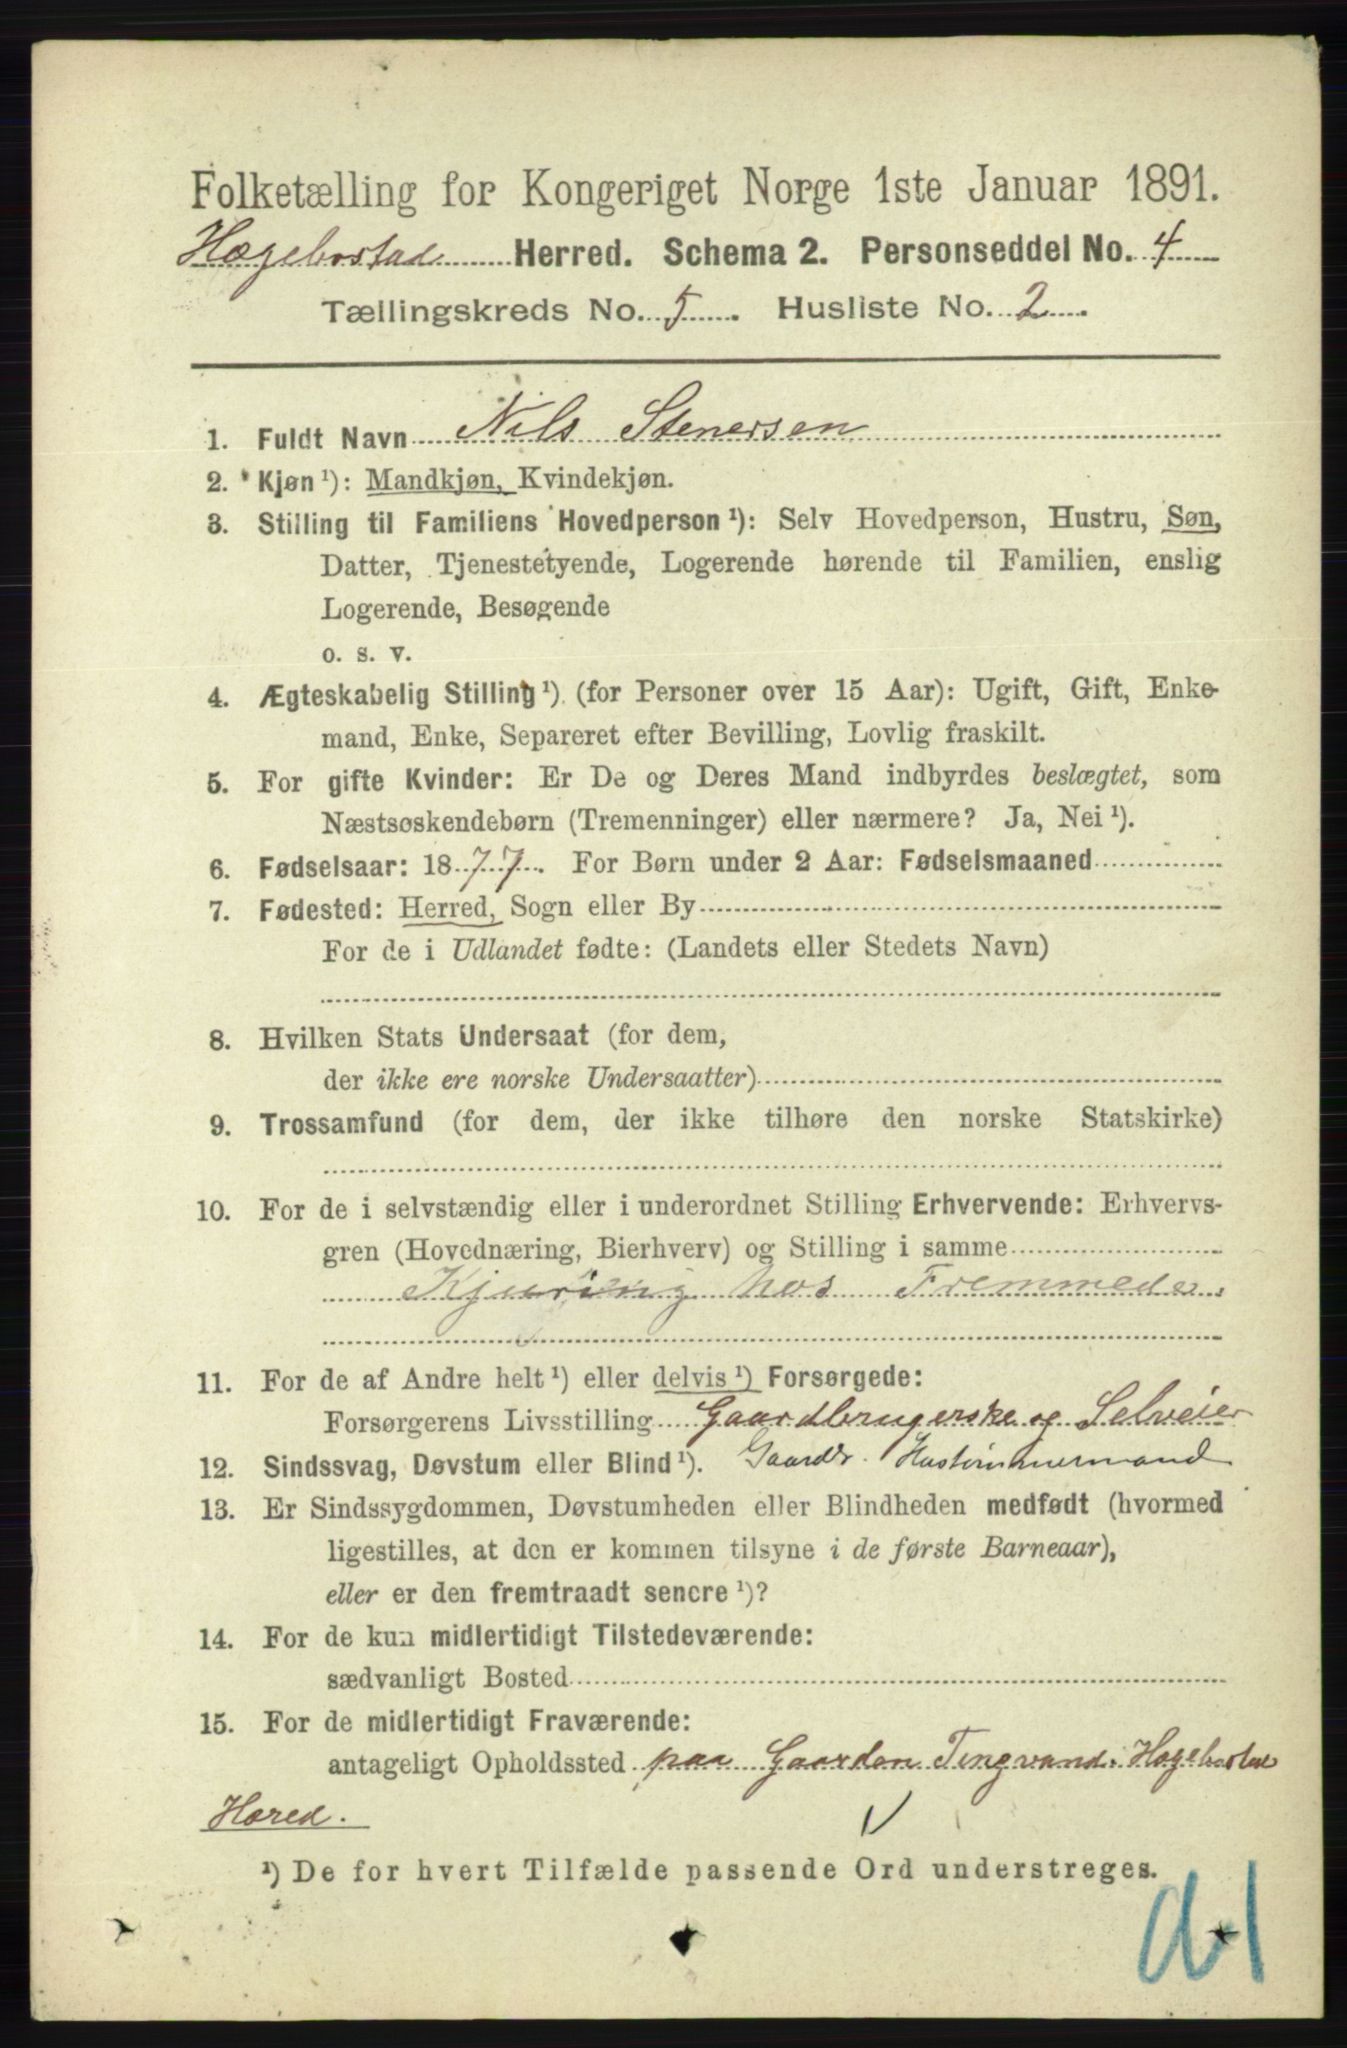 Folketælling for Kongeriget Norge 1ste Januar 1891.
Hægebostad Herred. Schema 2. Personseddel No. 4
Tællingskreds No. 5. Husliste No. 2.
1. Fuldt Navn Nils Stenersen
2. Kjøn ¹): Mandkjøn, Kvindekjøn.
3. Stilling til Familiens Hovedperson ¹): Selv Hovedperson, Hustru, Søn,
Datter, Tjenestetyende, Logerende hørende til Familien, enslig
Logerende, Besøgende
o. s. v.
4. Ægteskabelig Stilling ¹) (for Personer over 15 Aar): Ugift, Gift, Enke-
mand, Enke, Separeret efter Bevilling, Lovlig fraskilt.
5. For gifte Kvinder: Er De og Deres Mand indbyrdes beslægtet, som
Næstsøskendebørn (Tremenninger) eller nærmere? Ja, Nei ¹).
6. Fødselsaar: 1877. For Børn under 2 Aar: Fødselsmaaned
7. Fødested: Herred, Sogn eller By
For de i Udlandet fødte: (Landets eller Stedets Navn)
8. Hvilken Stats Undersaat (for dem,
der ikke ere norske Undersaatter)
9. Trossamfund (for dem, der ikke tilhøre den norske Statskirke)
10. For de i selvstændig eller i underordnet Stilling Erhvervende: Erhvervs-
gren (Hovednæring, Bierhverv) og Stilling i samme
hos Fremmede.
11. For de af Andre helt ¹) eller delvis ¹) Forsørgede:
Forsørgerens Livsstilling Gaardbrugerske og Selveier
12. Sindssvag, Døvstum eller Blind ¹). Gaardbr.
13. Er Sindssygdommen, Døvstumheden eller Blindheden medfødt (hvormed
ligestilles, at den er kommen tilsyne i de første Barneaar),
eller er den fremtraadt senere ¹)?
14. For de kun midlertidigt Tilstedeværende:
sædvanligt Bosted
15. For de midlertidigt Fraværende:
antageligt Opholdssted paa Gaarden Tingvand i Hægebostad
Hered.
¹) De for hvert Tilfælde passende Ord understreges.